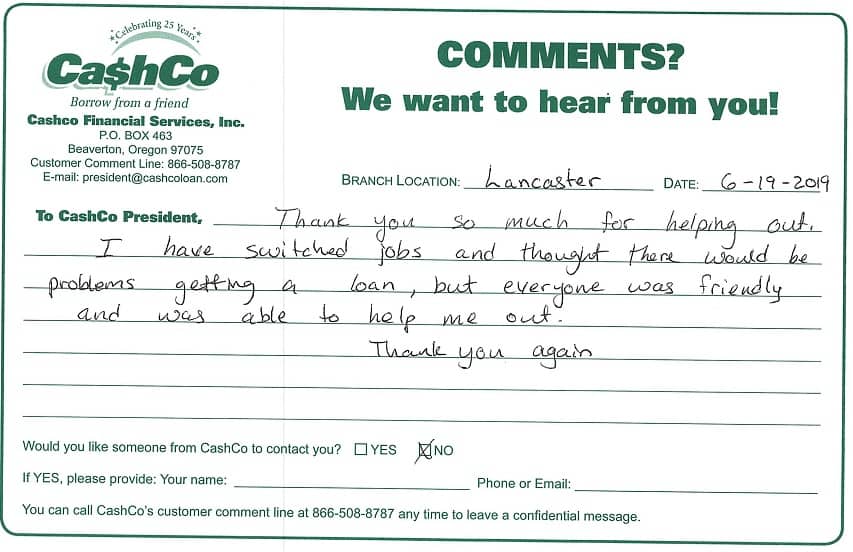 Celebrating 25 Years
Ca$hCo
Borrow from a friend
Cashco Financial Services, Inc.
P.O. BOX 463
Beaverton, Oregon 97075
Customer Comment Line: 866-508-8787
E-mail: president@cashcoloan.com
COMMENTS?
We want to hear from you!
BRANCH LOCATION: Lancaster DATE: 6-19-2019
To CashCo President, Thank you so much for helping out.
I have switched jobs and thought there would be
problems getting a loan, but everyone was friendly
and was able to help me out.
Thank you again
Would you like someone from CashCo to contact you? ☐ YES ☒ NO
If YES, please provide: Your name: Phone or Email:
You can call CashCo's customer comment line at 866-508-8787 any time to leave a confidential message.